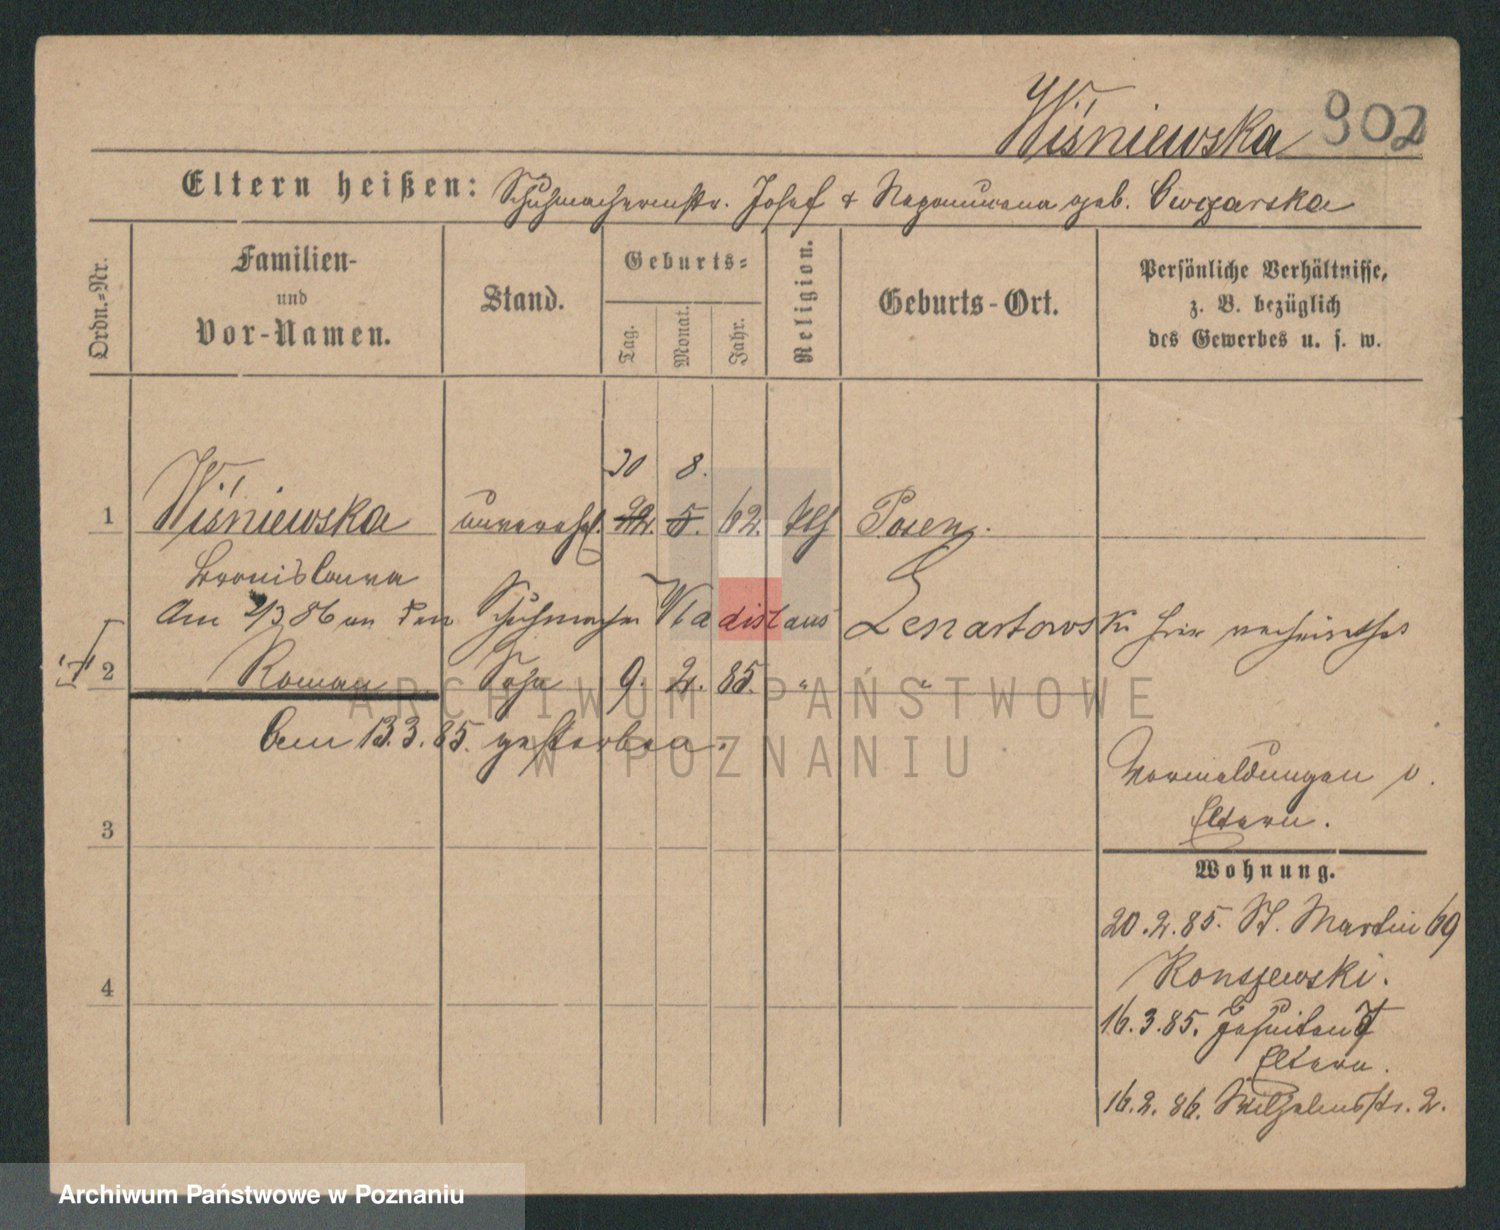 Wiśniewska 902
Eltern heißen: Schuhmachermstr. Josef + Nepomucena geb. Cwojarska
Ordn.-Nr.
Familien-
und
Vor-Namen.
Stand.
Geburts-
Tag.
Monat.
Jahr.
Religion.
Geburts-Ort.
Persönliche Verhältnisse,
z. B. bezüglich
des Gewerbes u. s. w.
30 8.
1 Wiśniewska unverehel. 22. 5. 62. kth Posen.
Bronislawa
Am 2/3 86 an den Schuhmacher Wladislaus Lenartowski hier verheirathet
2 Roman Sohn 9. 2. 85. " "
Am 13.3.85. gestorben.
ARCHIWUM PAŃSTWOWE
W POZNANIU
Vermeldungen v.
Eltern.
3
Wohnung.
20.2.85. St. Martin 69
Konszewski.
4
16.3.85. Jesuiten
Eltern.
16.2.86. Wilhelmstr. 2.
Archiwum Państwowe w Poznaniu